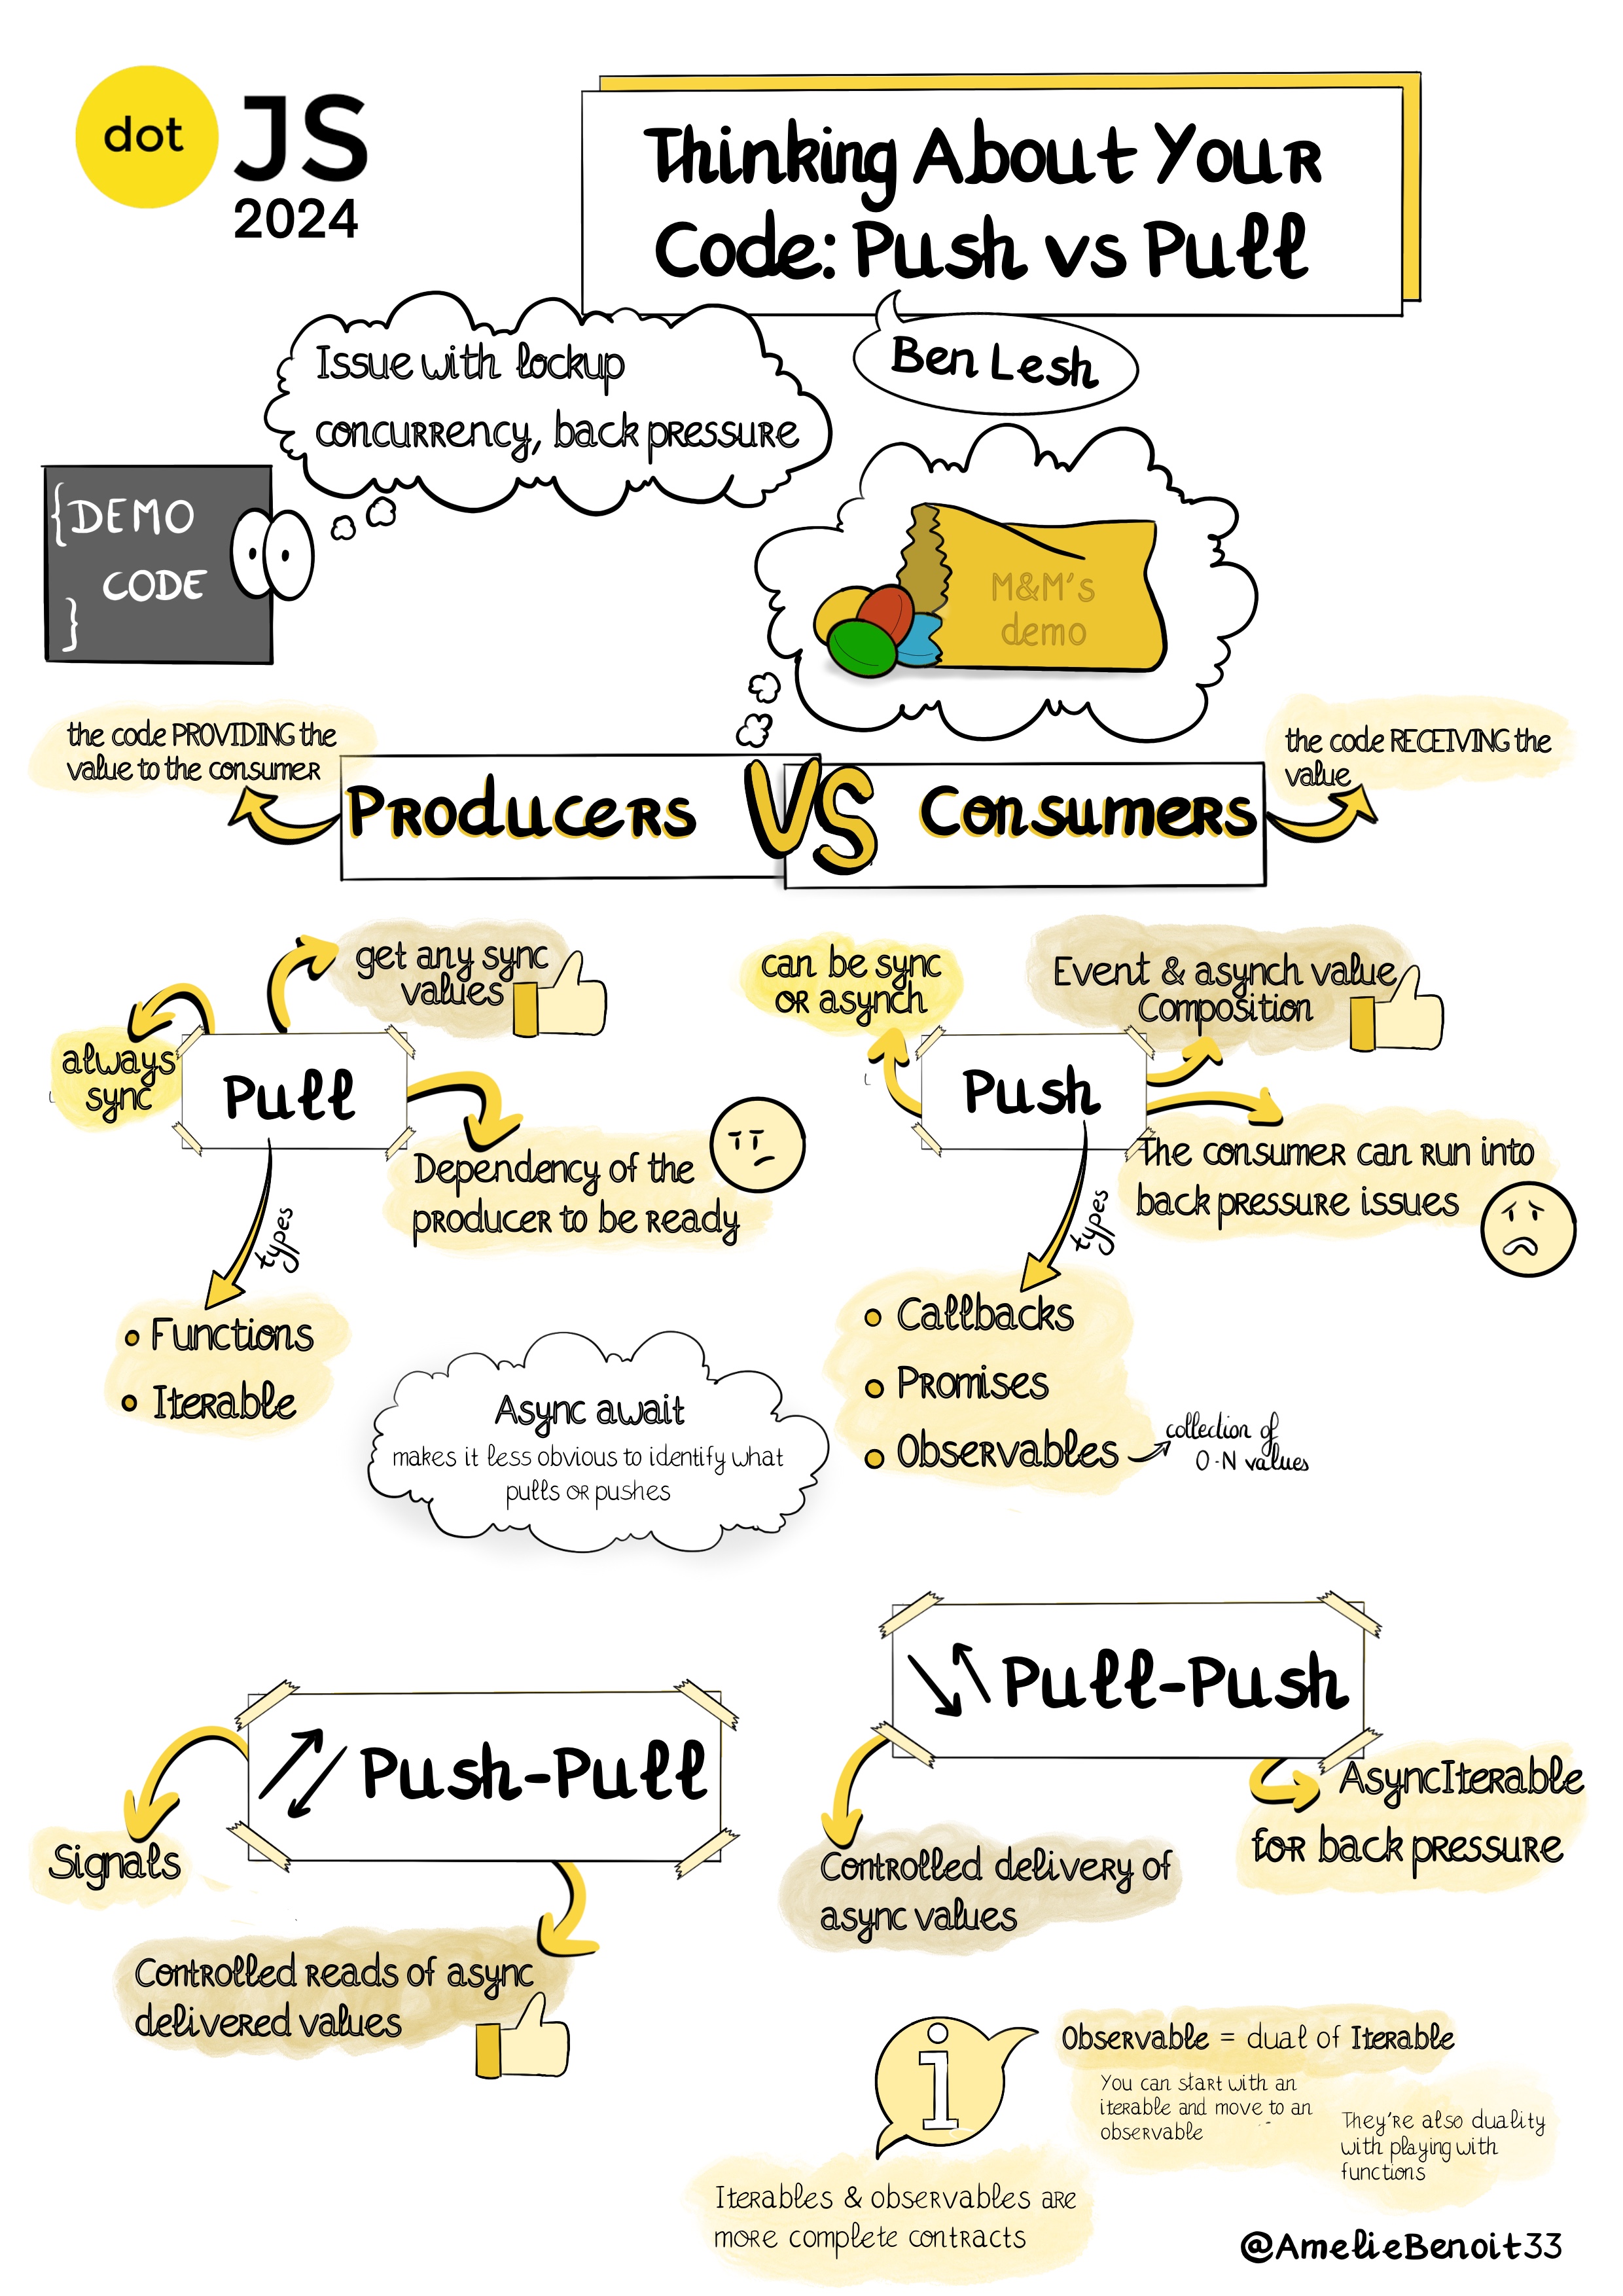 dot JS
2024
Thinking About Your
Code: Push vs Pull
Ben Lesh
Issue with lockup
concurrency, back pressure
{DEMO
CODE
}
M&M's
demo
the code PROVIDING the
value to the consumer
Producers VS Consumers
the code RECEIVING the
value
get any sync
values
always
sync
Pull
Dependency of the
producer to be ready
types
• Functions
• Iterable
can be sync
or asynch
Event & asynch value
Composition
Push
The consumer can run into
back pressure issues
types
• Callbacks
• Promises
• Observables
collection of
0-N values
Async await
makes it less obvious to identify what
pulls or pushes
Push-Pull
Signals
Controlled reads of async
delivered values
Pull-Push
Controlled delivery of
async values
AsyncIterable
for back pressure
i
Observable = dual of Iterable
You can start with an
iterable and move to an
observable
They're also duality
with playing with
functions
Iterables & observables are
more complete contracts
@AmelieBenoit33